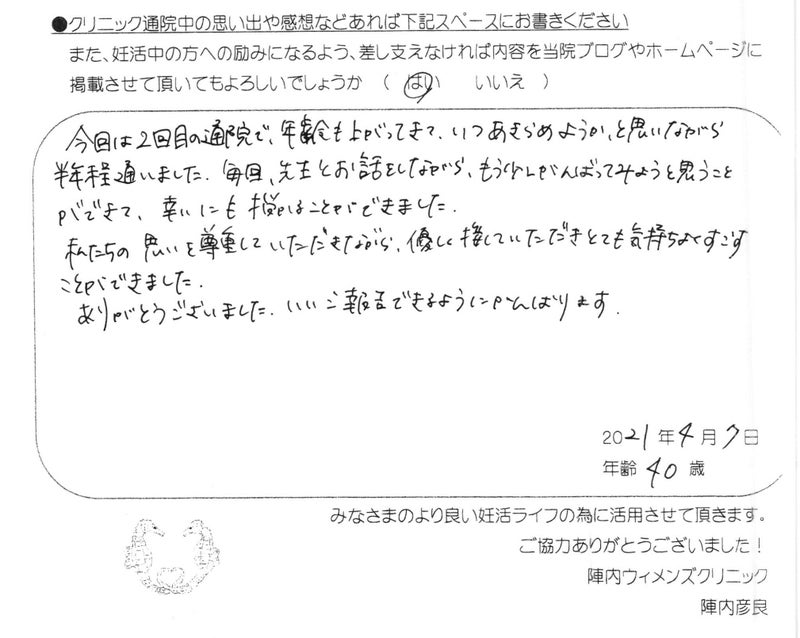 ●クリニック通院中の思い出や感想などあれば下記スペースにお書きください
また、妊活中の方への励みになるよう、差し支えなければ内容を当院ブログやホームページに
掲載させて頂いてもよろしいでしょうか （ はい　いいえ ）
今回は2回目の通院で、年齢も上がってきて、いつあきらめようか、と思いながら
半年程通いました。毎回、先生とお話をしながら、もう少しがんばってみようと思うこと
ができて、幸いにも授かることができました。
私たちの思いを尊重していただきながら、優しく接していただきとても気持ちよくすごす
ことができました。
ありがとうございました。いいご報告できるようにがんばります。
2021年4月7日
年齢 40 歳
みなさまのより良い妊活ライフの為に活用させて頂きます。
ご協力ありがとうございました！
陣内ウィメンズクリニック
陣内彦良